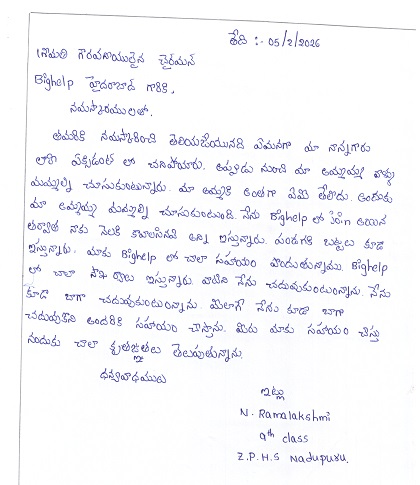 తేది :- 05/2/2026
శ్రీమతి గౌరవనీయులైన చైర్మన్
Bighelp హైదరాబాద్ గారికి,
నమస్కారములతో.
తమరికి నమస్కరించి తెలియచేయునది ఏమనగా మా నాన్నగారు
లారీ ఏక్సిడెంట్ లో చనిపోయారు. అప్పుడు నుంచి మా అమ్మమ్మ వాళ్ళు
మమ్మల్ని చూసుకుంటున్నారు. మా అమ్మకి అంతగా ఏమి తెలీదు. అందుకు
మా అమ్మమ్మ మమ్మల్ని చూసుకుంటుంది. నేను Bighelp లో Join అయిన
తర్వాత నాకు నెలకి కావాలసినవి అన్ని ఇస్తున్నారు. పండగకి బట్టలు కూడ
ఇస్తున్నారు. మాకు Bighelp లో చాలా సహాయం పొందుతున్నాము. Bighelp
లో చాలా ఇస్తున్నారు. వాటిని నేను చదువుకుంటున్నాను. నేను
కూడా బాగా చదువుకుంటున్నాను. మీలాగే నేను కూడా బాగా
చదువుకొని అందరికి సహాయం చేస్తాను. మీరు మాకు సహాయం చేస్తు
నందుకు చాలా కృతజ్ఞతలు తెలుపుతున్నాను.
ధన్యవాదములు
ఇట్లు
N. Ramalakshmi
9th class
Z.P.H.S Nadupuru.